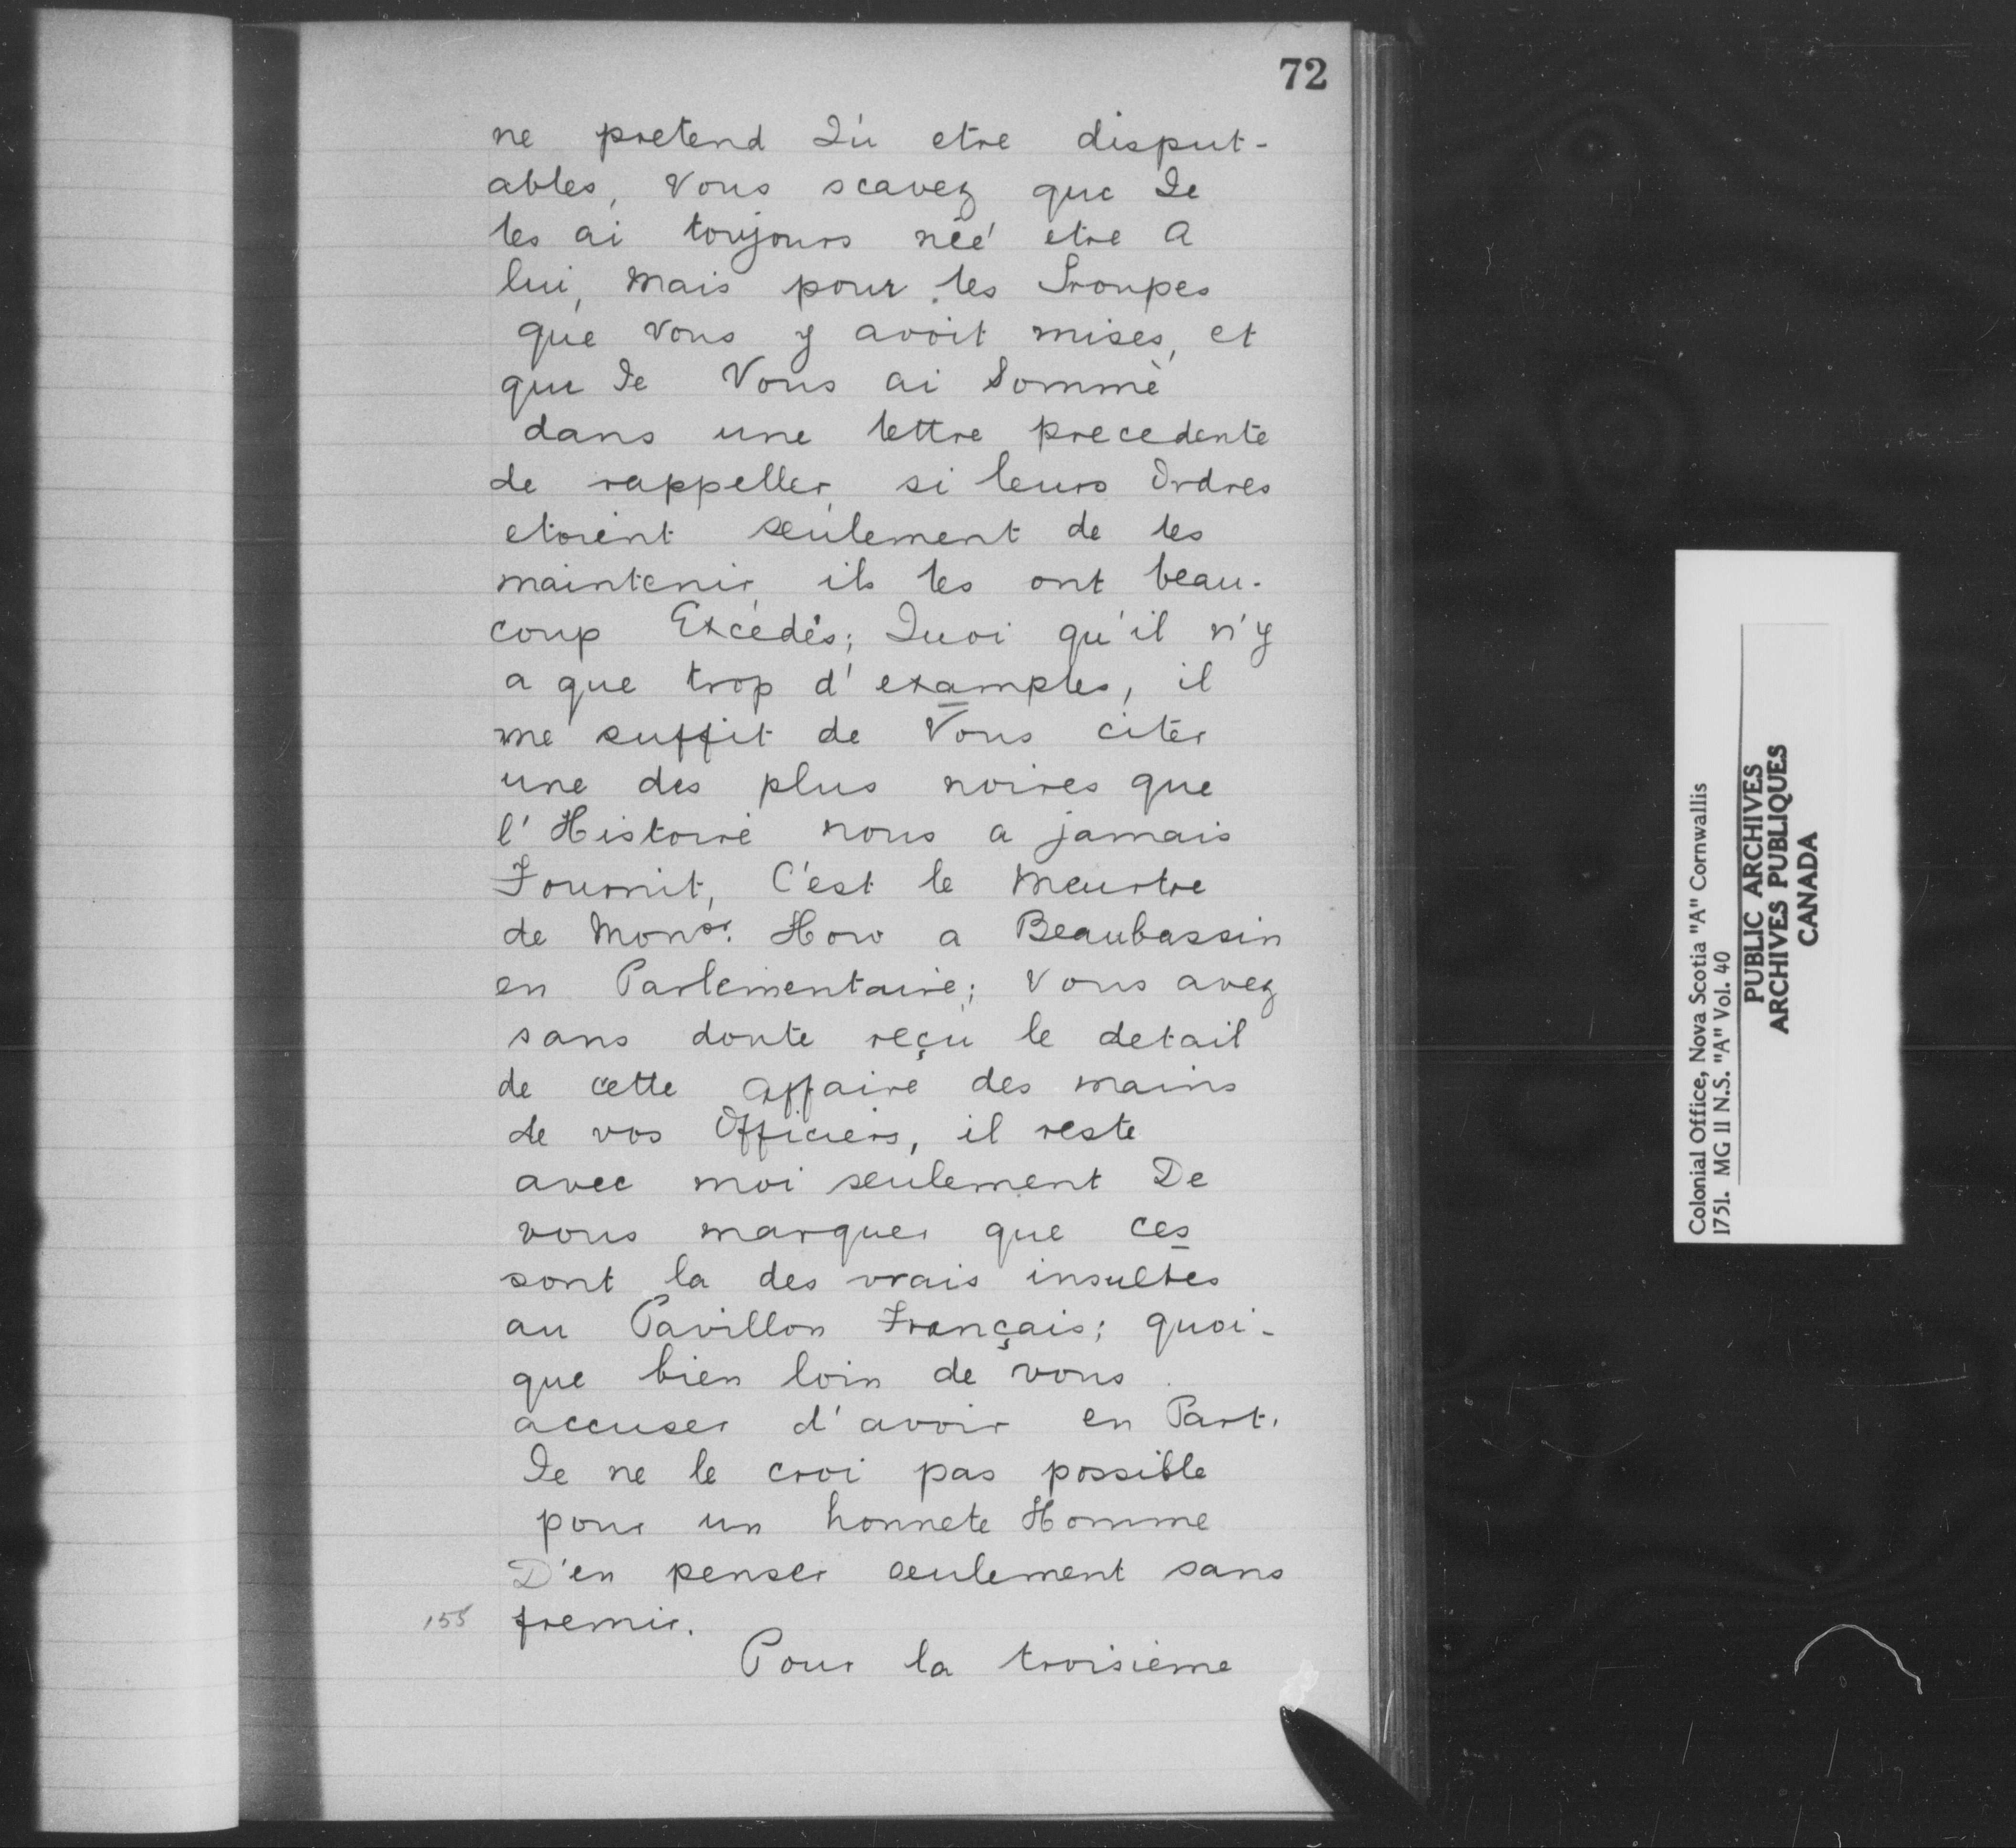 72
ne pretend Qu etre disput-
ables, vous scavez que Je
les ai toujours néé etre A
lui, Mais pour les Troupes
que vous y avoit mises, et
que Je Vous ai Sommè
dans une lettre precedente
de rappeller, si leurs Ordres
etoient seulement de les
maintenir, ils les ont beau-
coup Excédés; Quoi qu'il n'y
a que trop d'examples, il
me suffit de Vous citer
une des plus noires que
l'Histoire nous a jamais
Fournit, C'est le Meurtre
de Monsr. How a Beaubassin
en Parlementaire; Vous avez
sans doute reçu le detail
de cette Affaire des mains
de vos Officiers, il reste
avec moi seulement De
vous marquer que ces
sont la des vrais insultes
au Pavillon Français; quoi-
que bien loin de vous
accuser d'avoir en Part.
Je ne le croi pas possible
pour un honnete Homme
D'en penser seulement sans
155 fremir.
Pour la troisième
Colonial Office, Nova Scotia "A" Cornwallis
1751. MG 11 N.S. "A" Vol. 40
PUBLIC ARCHIVES
ARCHIVES PUBLIQUES
CANADA